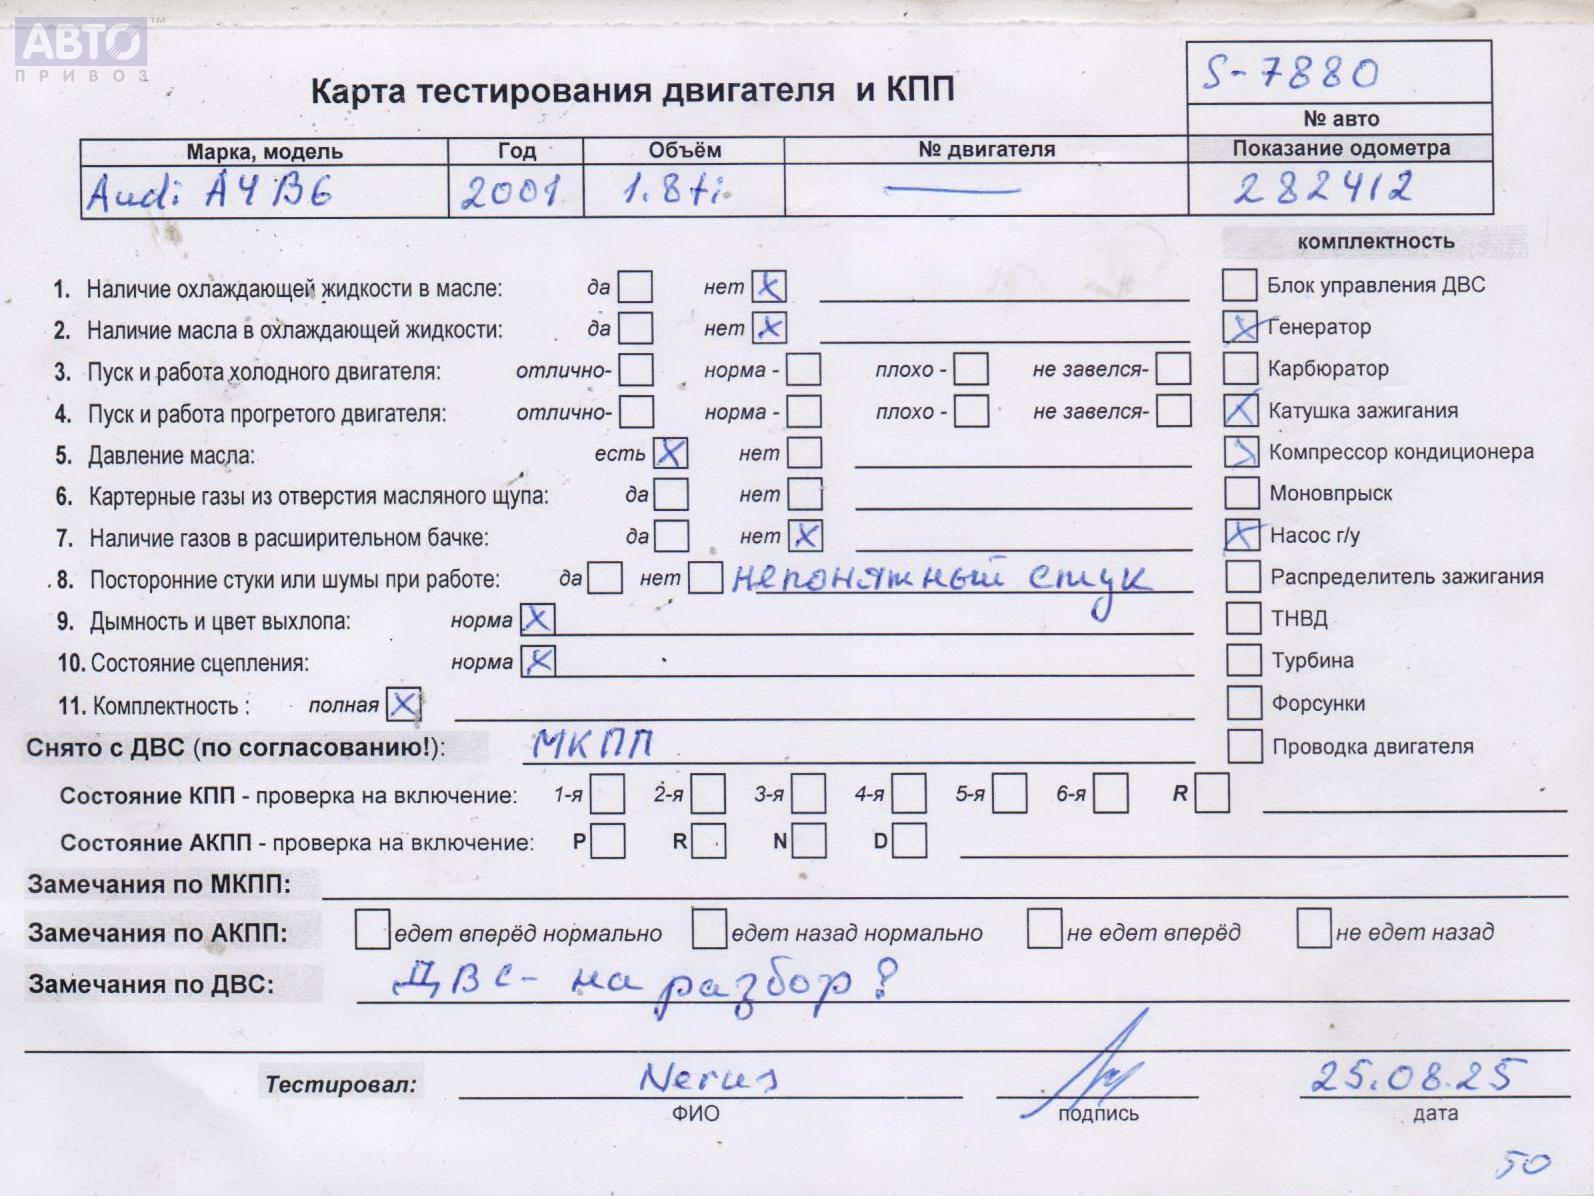 АВТО™
ПРИВОЗ
S-7880
Карта тестирования двигателя и КПП
№ авто
Марка, модель Год Объём № двигателя Показание одометра
Audi A4 B6 2001 1.8ti — 282412
комплектность
1. Наличие охлаждающей жидкости в масле: да нет X Блок управления ДВС
2. Наличие масла в охлаждающей жидкости: да нет X X Генератор
3. Пуск и работа холодного двигателя: отлично- норма - плохо - не завелся- Карбюратор
4. Пуск и работа прогретого двигателя: отлично- норма - плохо - не завелся- X Катушка зажигания
5. Давление масла: есть X нет X Компрессор кондиционера
6. Картерные газы из отверстия масляного щупа: да нет Моновпрыск
7. Наличие газов в расширительном бачке: да нет X X Насос г/у
8. Посторонние стуки или шумы при работе: да нет непонятный стук Распределитель зажигания
9. Дымность и цвет выхлопа: норма X ТНВД
10. Состояние сцепления: норма X Турбина
11. Комплектность : полная X Форсунки
Снято с ДВС (по согласованию!): МКПП Проводка двигателя
Состояние КПП - проверка на включение: 1-я 2-я 3-я 4-я 5-я 6-я R
Состояние АКПП - проверка на включение: P R N D
Замечания по МКПП:
Замечания по АКПП: едет вперёд нормально едет назад нормально не едет вперёд не едет назад
Замечания по ДВС: ДВС - на разбор?
Тестировал: Nerus 25.08.25
ФИО подпись дата
50